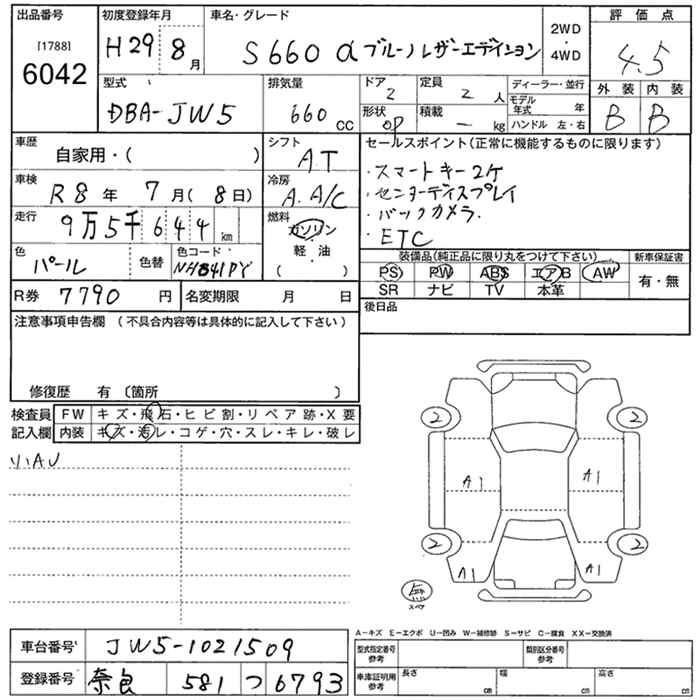 出品番号 初度登録年月 車名・グレード 2WD・4WD 評価点
[1788]
6042
H29 8月
S660 α ブルーノレザーエディション
4.5
外装 内装
B B
型式 排気量 ドア 定員 ディーラー・並行
DBA-JW5 660 CC 2 2人 モデル年式 年
形状 積載 ハンドル 左・右
OP — kg
車歴 自家用・( )
シフト AT
セールスポイント(正常に機能するものに限ります)
・スマートキー2ケ
・センターディスプレイ
・バックカメラ.
・ETC
車検 R8年 7月(8日)
冷房 A.A/C
走行 9万5千644km
燃料 ガソリン
軽油
( )
色 パール 色替 色コード NH841PY
装備品(純正品に限り丸をつけて下さい) 新車保証書
PS PW ABS エアB AW 有・無
SR ナビ TV 本革
R券 7790円 名変期限 月 日
後日品
注意事項申告欄 (不具合内容等は具体的に記入して下さい)
修復歴 有〔箇所 〕
検査員 FW キズ・飛石・ヒビ割・リペア跡・X要
記入欄 内装 キズ・汚レ・コゲ・穴・スレ・キレ・破レ
2 2
A1 A1
2 2
A1 A1
無
スペア
A-キズ E-エクボ U-凹み W-補修跡 S-サビ C-腐食 XX-交換済
車台番号 JW5-1021509
型式指定番号 参考 類別区分番号 参考
登録番号 奈良 581 つ 6793
車庫証明用 参考 長さ cm 幅 cm 高さ cm